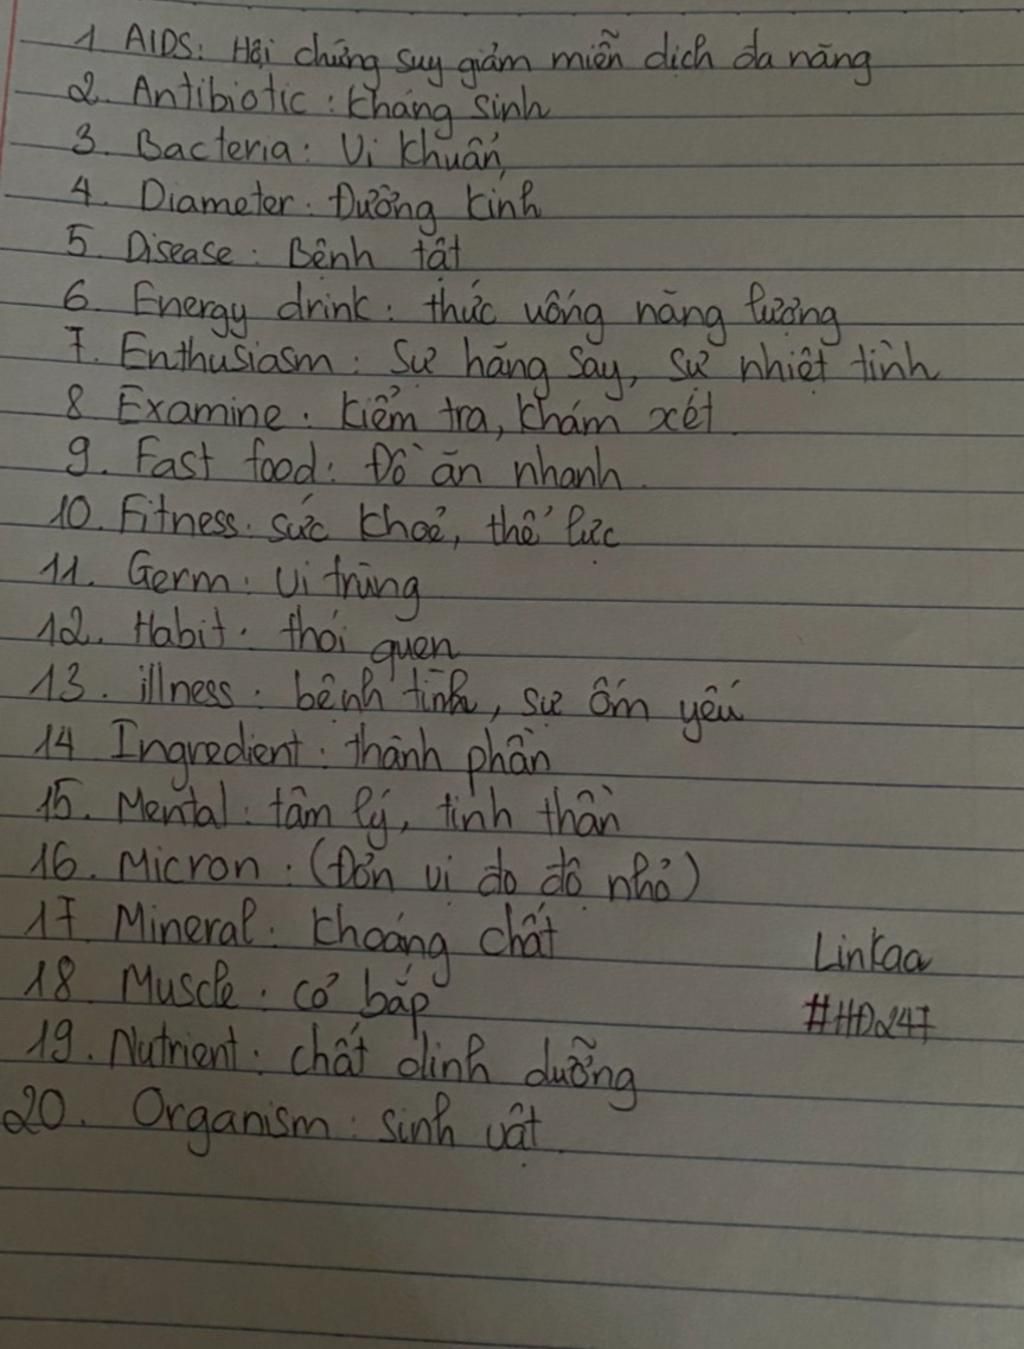 1 AIDS: Hội chứng suy giảm miễn dịch đa năng
2. Antibiotic: kháng sinh
3. Bacteria: Vi khuẩn
4. Diameter: Đường kính
5. Disease: Bệnh tật
6. Energy drink: thức uống năng lượng
7. Enthusiasm: Sự hăng say, sự nhiệt tình
8 Examine: kiểm tra, khám xét.
9. Fast food: Đồ ăn nhanh.
10. Fitness: sức khoẻ, thể lực
11. Germ: Vi trùng
12. Habit: thói quen
13. illness: bệnh tình, sự ốm yếu
14 Ingredient: thành phần
15. Mental: tâm lý, tinh thần
16. Micron: (Đơn vị đo độ nhỏ)
17. Mineral: khoáng chất
Linkaa
18. Muscle: cơ bắp
#HD247
19. Nutrient: chất dinh dưỡng
20. Organism: sinh vật.